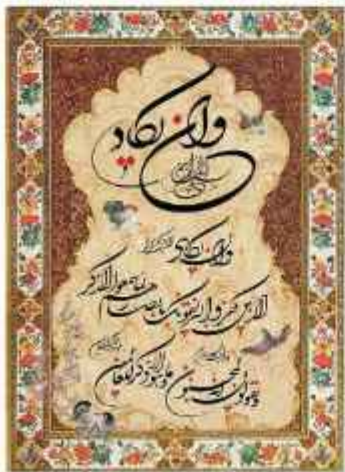 وان یکاد
وان یکاد
الذین کفروا لیزلقونک بابصارهم لما سمعوا الذکر
و یقولون انه لمجنون و ما هو الا ذکر للعالمین